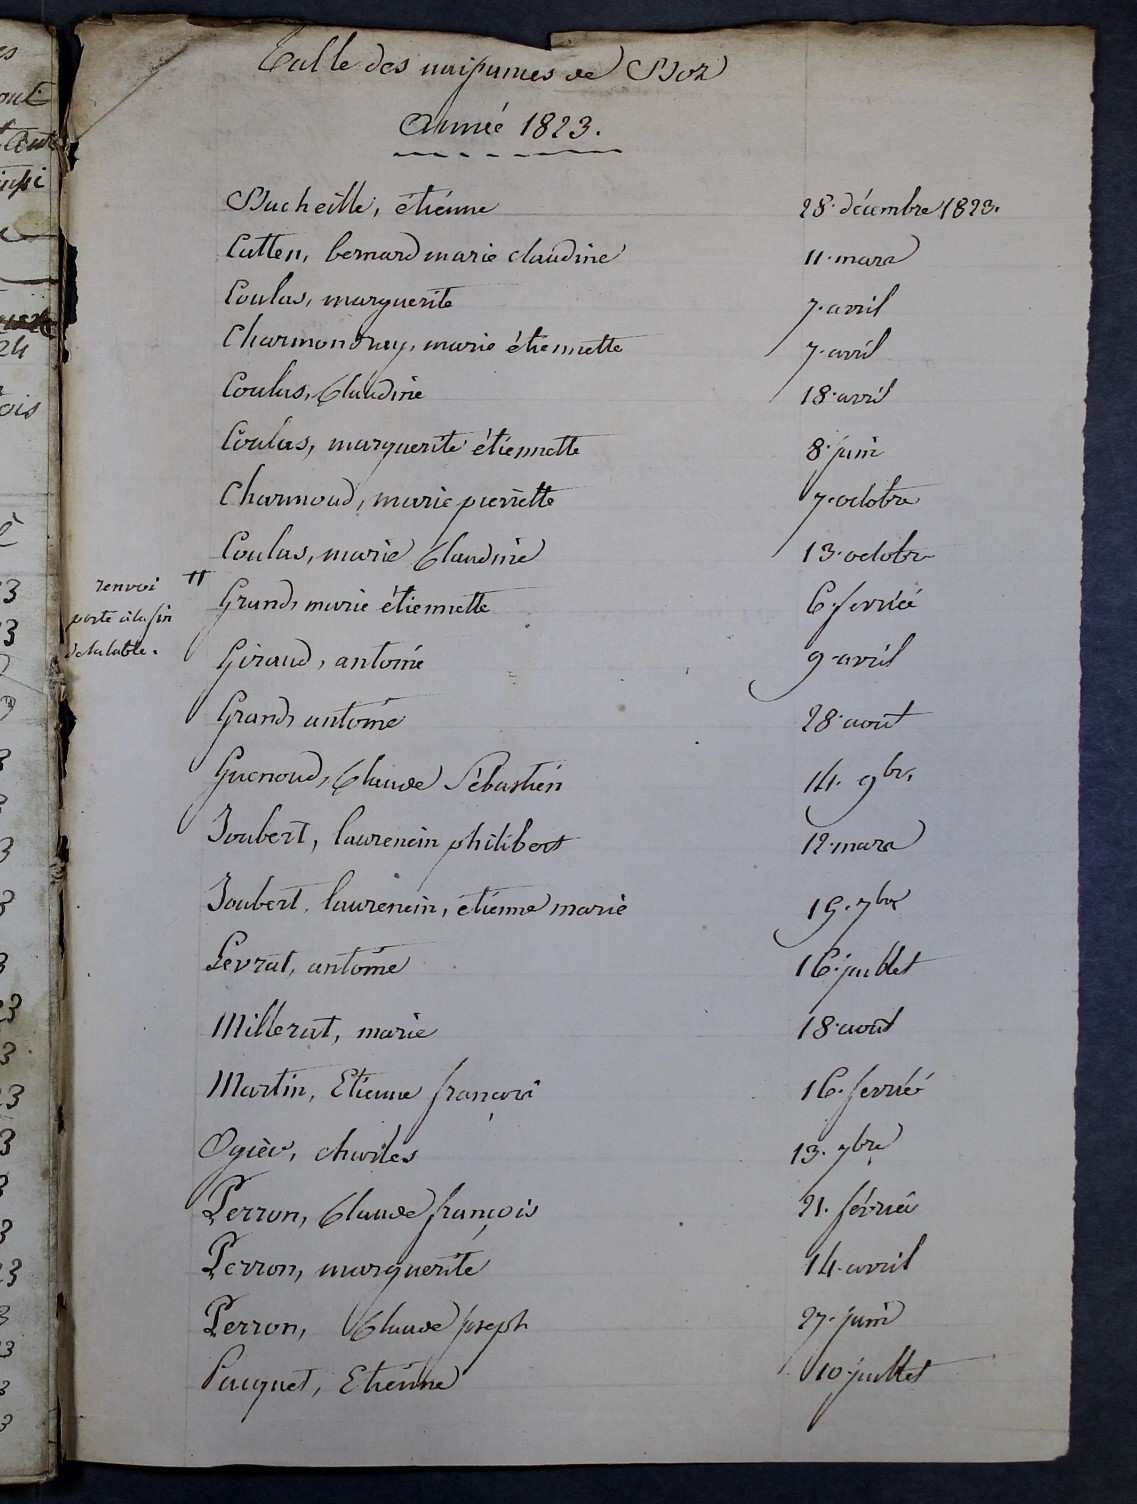 Table des naissances de Boz
année 1823.
Bucheille, étienne 28. décembre 1823.
Cutten, bernard marie claudine 11. mars
Coulas, marguerite 7. avril
Charmondray, marie étiennette 7. avril
Coulas, Claudine 18. avril
Coulas, marguerite étiennette 8. juin
Charnoud, marie pierrette 7. octobre
Coulas, marie Claudine 13. octobre
renvoi
porté à la fin
de la table.
Grand, marie étiennette 6. fevrier
Giraud, antoine 9. avril
Grand, antoine 28. août
Guenoud, Claude Sébastien 14. 9bre
Joubert, laurencin philibert 12. mars
Joubert, laurencin, étienne marie 19. 7bre
Levrat, antoine 16. juillet
Millerat, marie 18. août
Martin, Etienne françois 16. fevrier
Ogier, charles 13. 7bre
Perron, Claude françois 21. février
Perron, marguerite 14. avril
Perron, Claude joseph 27. juin
Paequet, Etienne 10. juillet